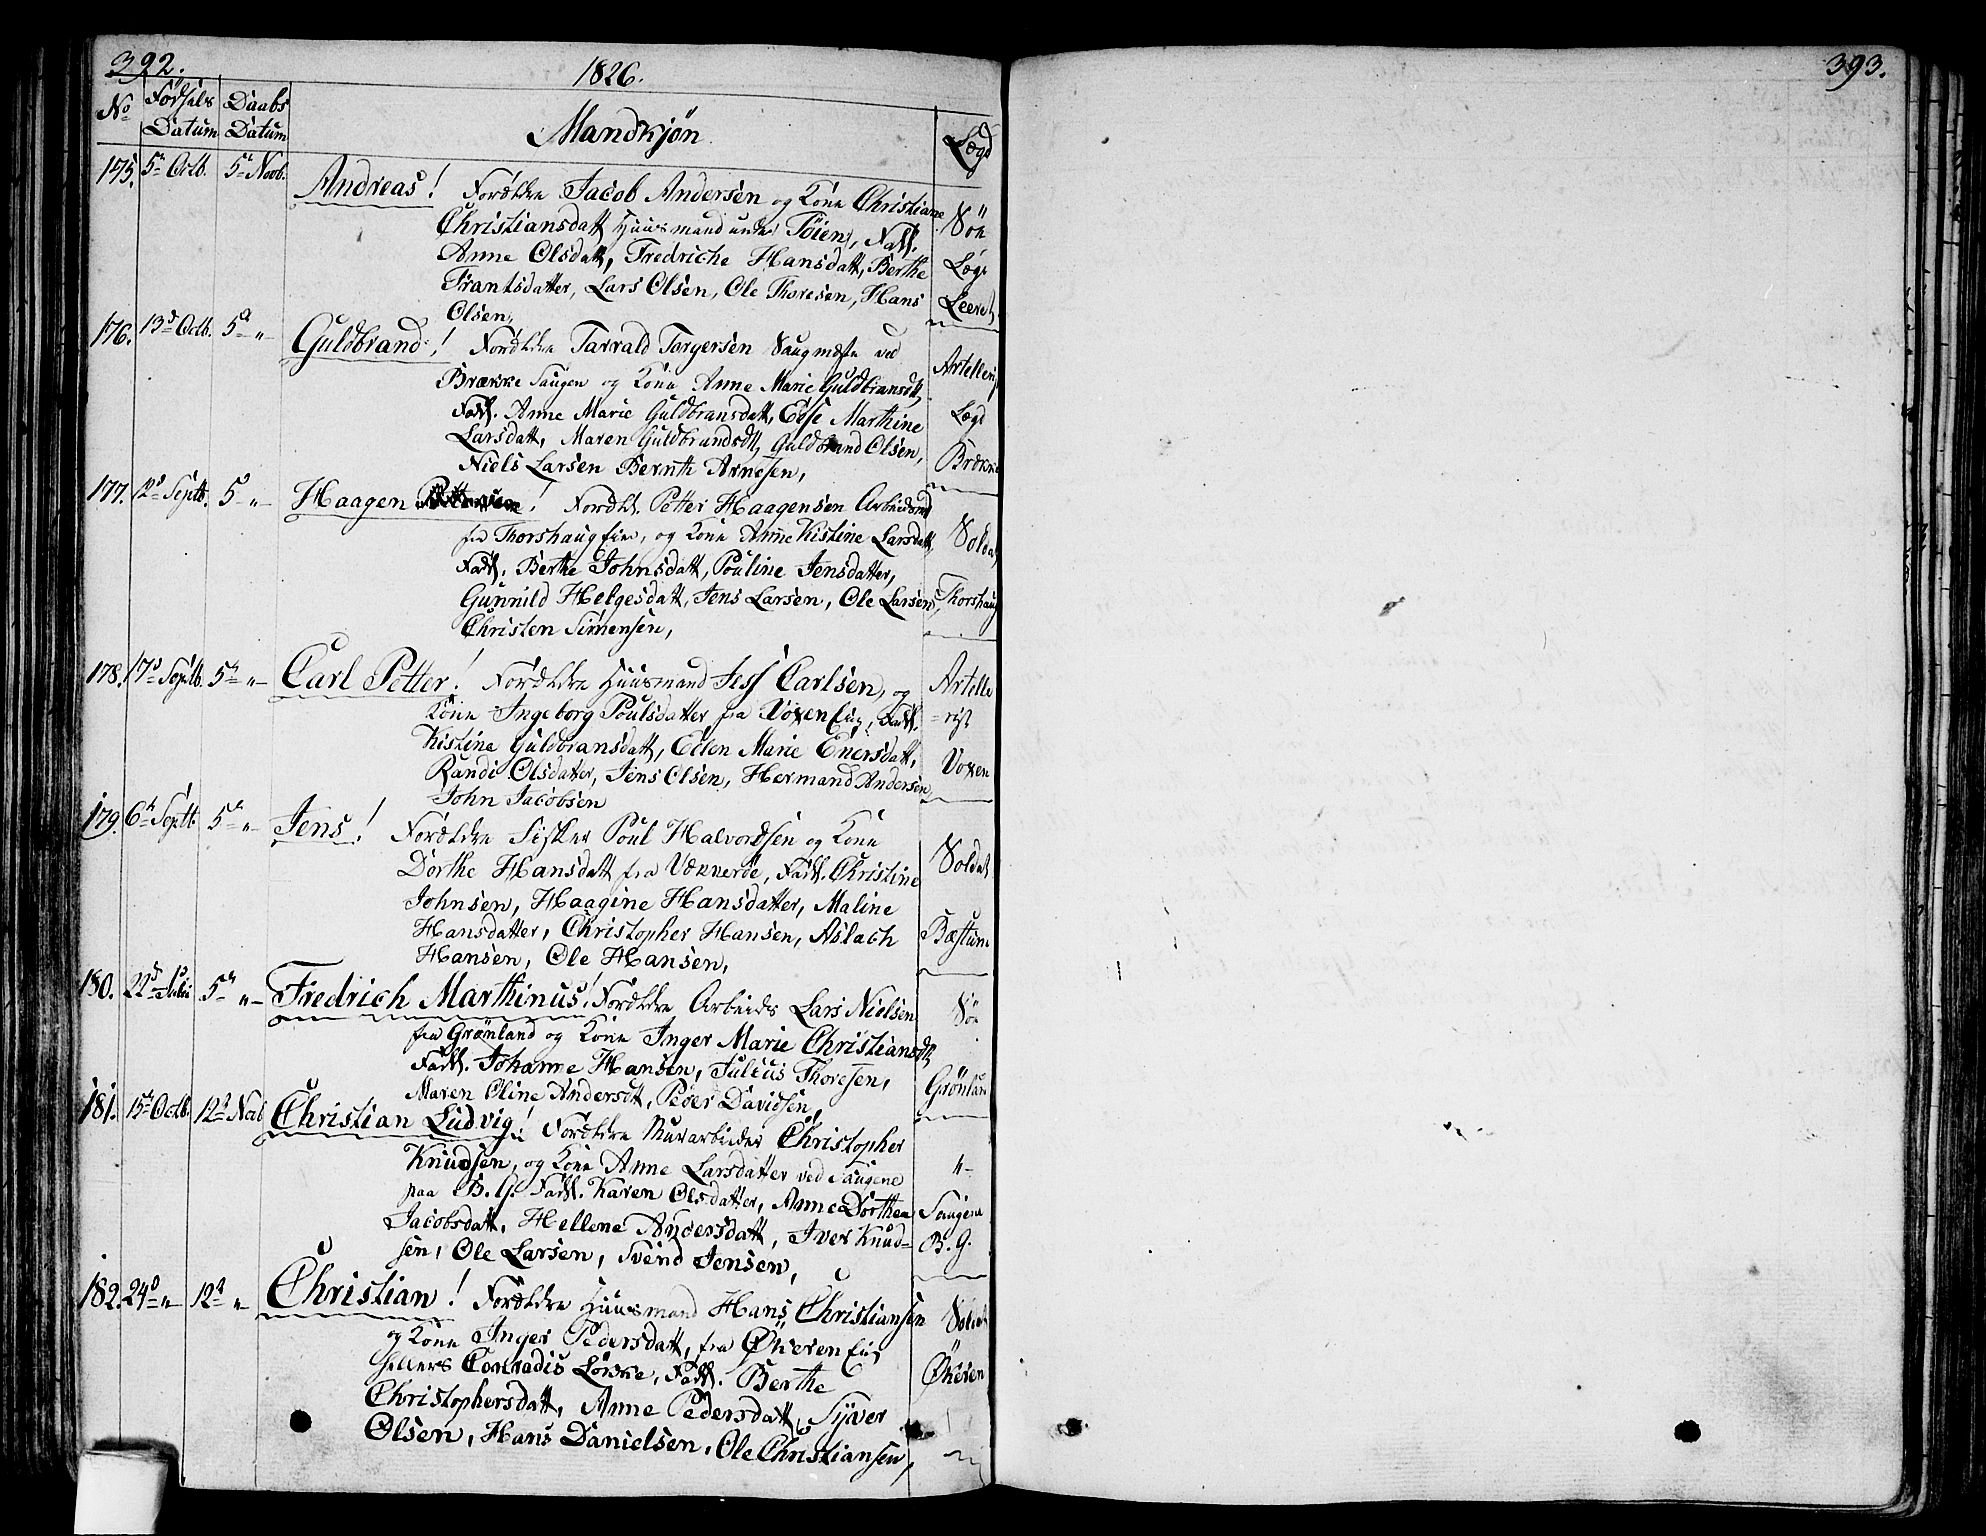 392.
1826.
No
Fødsels Datum
Daabs Datum
Mandkjøn
Lægd
175. 5te Octb. 5te Novb. Andreas! Forældre Jacob Andersen og Kone Christiane
Christiansdatt Huusmand under Töien, Fadd.
Anne Olsdatt, Fredriche Hansdatt, Berthe
Frantsdatter, Lars Olsen, Ole Thoresen, Hans
Olsen,
Söe
Lægd
Leeret
176. 13de Octb. 5te " Guldbrand! Forældre Tarrald Torgersen Saugmester ved
Brække Saugen og Kone Anne Marie Guldbransdtt,
Fadd. Anne Marie Guldbransdatt, Else Marthine
Larsdatt, Maren Guldbrandsdtt, Guldbrand Olsen,
Niels Larsen Bernth Arnesen,
Artelleri
Lægd
Brække
177. 12te Septb. 5te " Haagen ! Forældr. Petter Haagensen Arbeidsmd
fra Thorshaug Eie, og Kone Anne Kistine Larsdatt,
Fadd. Berthe Johnsdatt, Pouline Jensdatter,
Gunnild Helgesdatt, Jens Larsen, Ole Larsen,
Christen Simensen,
Soldat
Thorshaug
178. 17de Septb. 5te " Carl Petter! Forældre Huusmand Jess Carlsen, og
Kone Ingeborg Poulsdatter fra Voxen Eie, Fadd.
Kistine Guldbransdatt, Ellen Marie Enersdatt,
Randi Olsdatter, Jens Olsen, Hermand Andersen,
John Jacobsen
Artelle
=rist
Voxen
179. 6te Septb 5te " Jens! Forældre Sistler Poul Halvordsen og Kone
Dorthe Hansdatt fra Vænneröe, Fadd. Christine
Johnsen, Haagine Hansdatter, Maline
Hansdatter, Christopher Hansen, Aslach
Hansen, Ole Hansen,
Soldat
Bæstum
180. 22de 5te " Fredrich Marthinus! Forældre Arbeids Lars Nielsen
fra Grönland og Kone Inger Marie Christiansdtt,
Fadd. Johanne Hansen, Julius Thoresen,
Maren Oline Andersdtt, Peder Davidsen,
Söe
Grönland
181. 15de Octb. 12te Novb Christian Ludvig! Forældre Murarbeider Christopher
Knudsen, og Kone Anne Larsdatter ved Saugene
paa B. G. Fadd. Karen Olsdatter, Anne Dorthea
Jacobsdatt, Hellene Andersdatt, Iver Knud=
sen, Ole Larsen, Svend Jensen,
"
Saugene
B. G.
182. 24de " 12te " Christian! Forældre Huusmand Hans Christiansen
og Kone Inger Pedersdatt, fra Økeren Eie
hellers Conradis Løkke, Fadd. Berthe
Christophersdatt, Anne Pedersdatt, Syver
Olsen, Hans Danielsen, Ole Christiansen,
Soldat
Økeren
393.